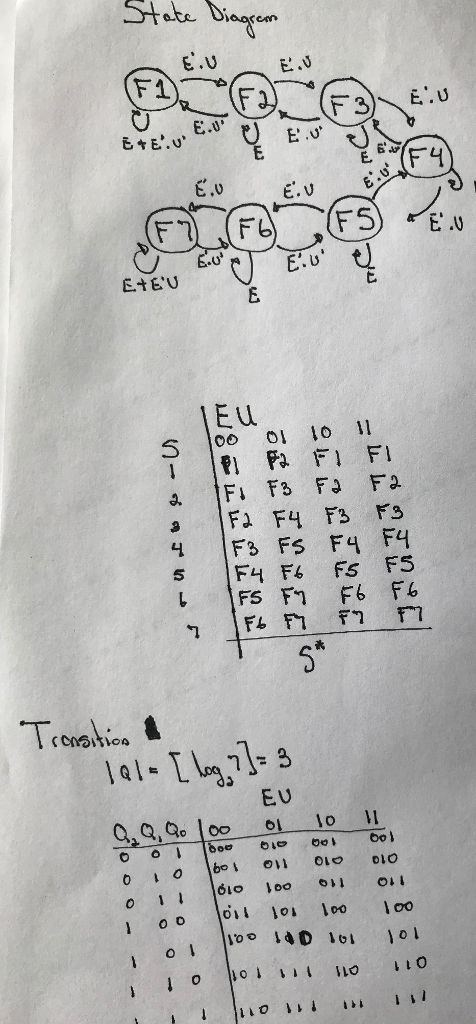 State Diagram
E'.U E'.U
F1 F2 F3 E'.U
E+E'.U' E'.U' E E'.U' E E'.U' F4
E'.U E'.U E'.U'
F7 F6 F5 E'.U
E'.U' E'.U' E
E+E'U E
EU
S 00 01 10 11
1 F1 F2 F1 F1
2 F1 F3 F2 F2
3 F2 F4 F3 F3
4 F3 F5 F4 F4
5 F4 F6 F5 F5
6 F5 F7 F6 F6
7 F6 F7 F7 F7
S*
Transition
|Q| = [log₂7] = 3
EU
Q₂ Q₁ Q₀ 00 01 10 11
0 0 1 000 010 001 001
0 1 0 001 011 010 010
0 1 1 010 100 011 011
1 0 0 011 101 100 100
1 0 1 100 110 101 101
1 1 0 101 111 110 110
1 1 1 110 111 111 111